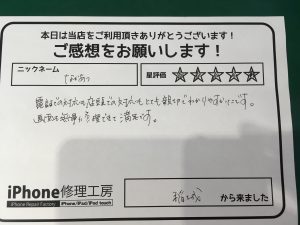 本日は当店をご利用頂きありがとうございます!
ご感想をお願いします!
ニックネーム
なおあつ
星評価
☆☆☆☆☆
電話での対応も店頭での対応もとても親切でわかりやすかったです。
画面も綺麗に修理できて満足です。
iPhone修理工房
iPhone Repair Factory
iPhone/iPad/iPod touch
稲城
から来ました